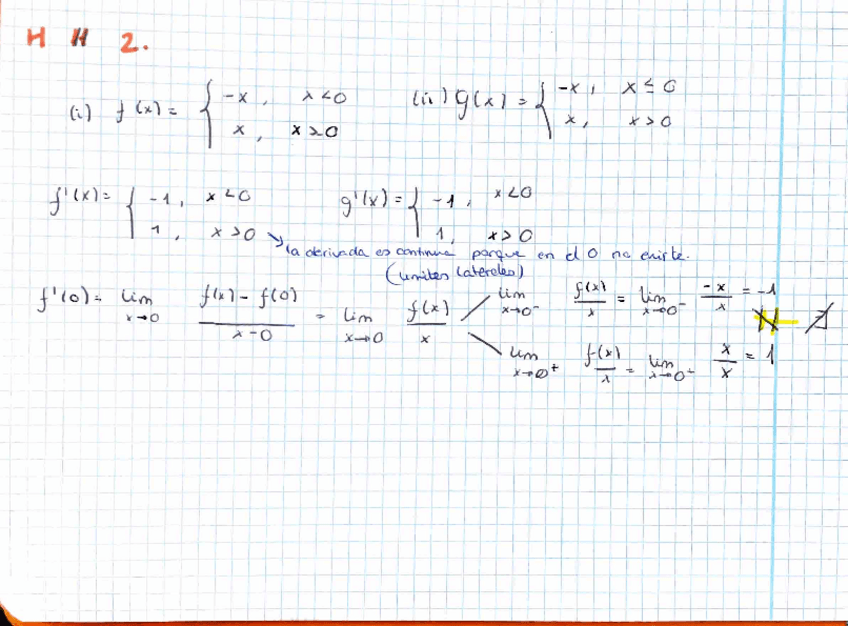 H H 2.
(i) f(x) = { -x, x<0 (ii) g(x) = { -x, x≤0
x, x≥0 x, x>0
f'(x) = { -1, x<0 g'(x) = { -1, x<0
1, x>0 1, x>0
↘ la derivada es continua porque en el 0 no existe.
(limites laterales)
f'(0) = lim x→0 f(x) - f(0) / x-0 = lim x→0 f(x) / x lim x→0⁻ f(x) / x = lim x→0⁻ -x / x = -1
∄
lim x→0⁺ f(x) / x = lim x→0⁺ x / x = 1